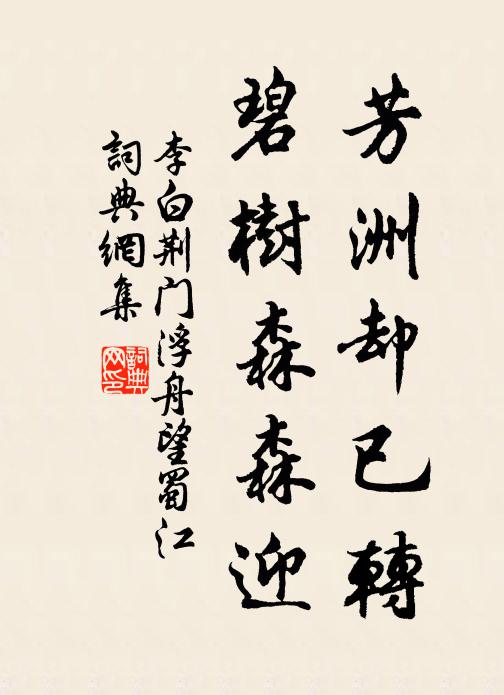 芳洲却已轉
碧樹森森迎
李白荆门浮舟望蜀江
詞典網集
詞典网印